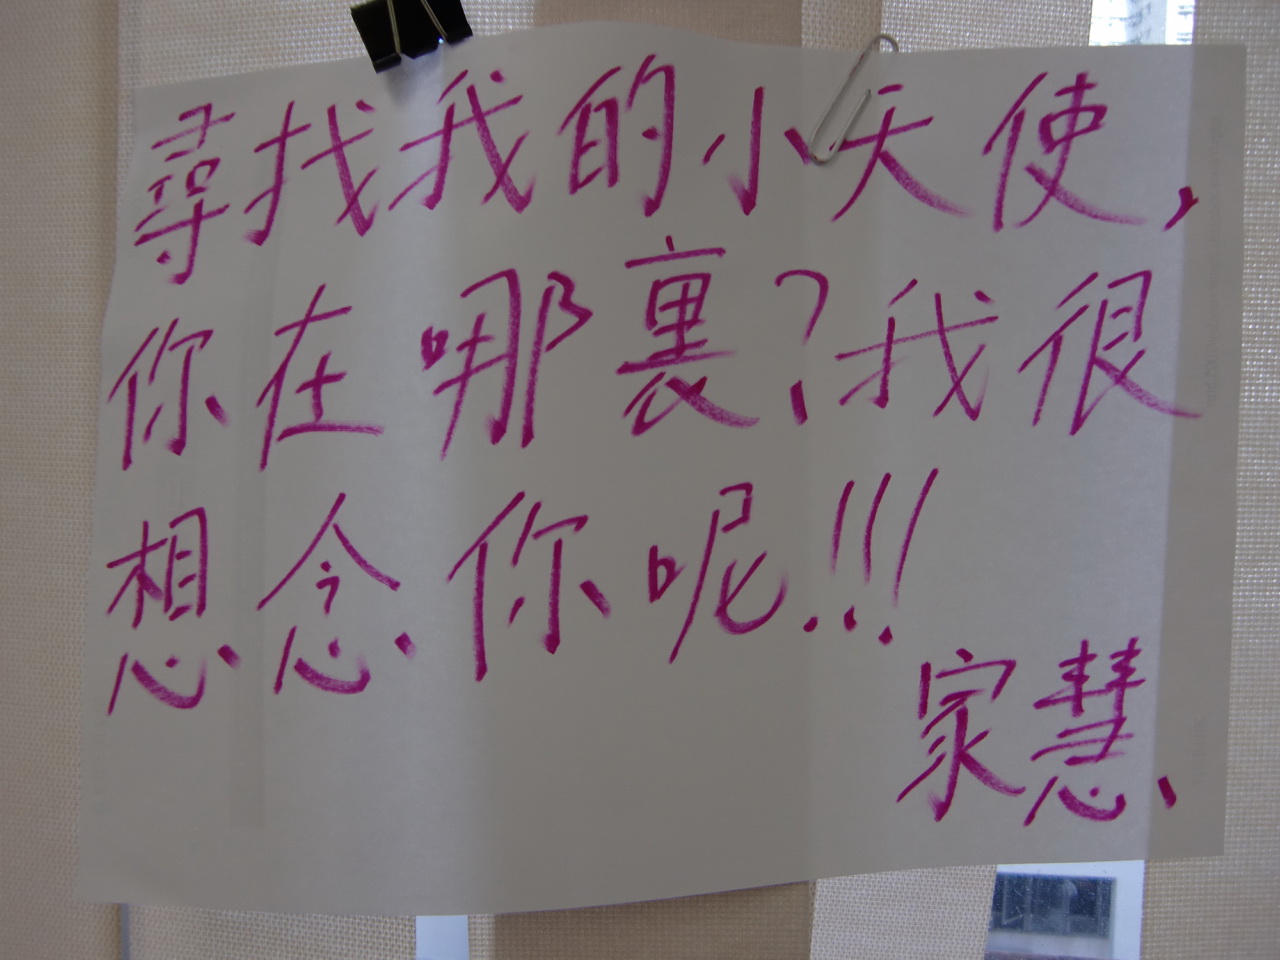 尋找我的小天使,
你在哪裏?我很
想念你呢!!!
家慧